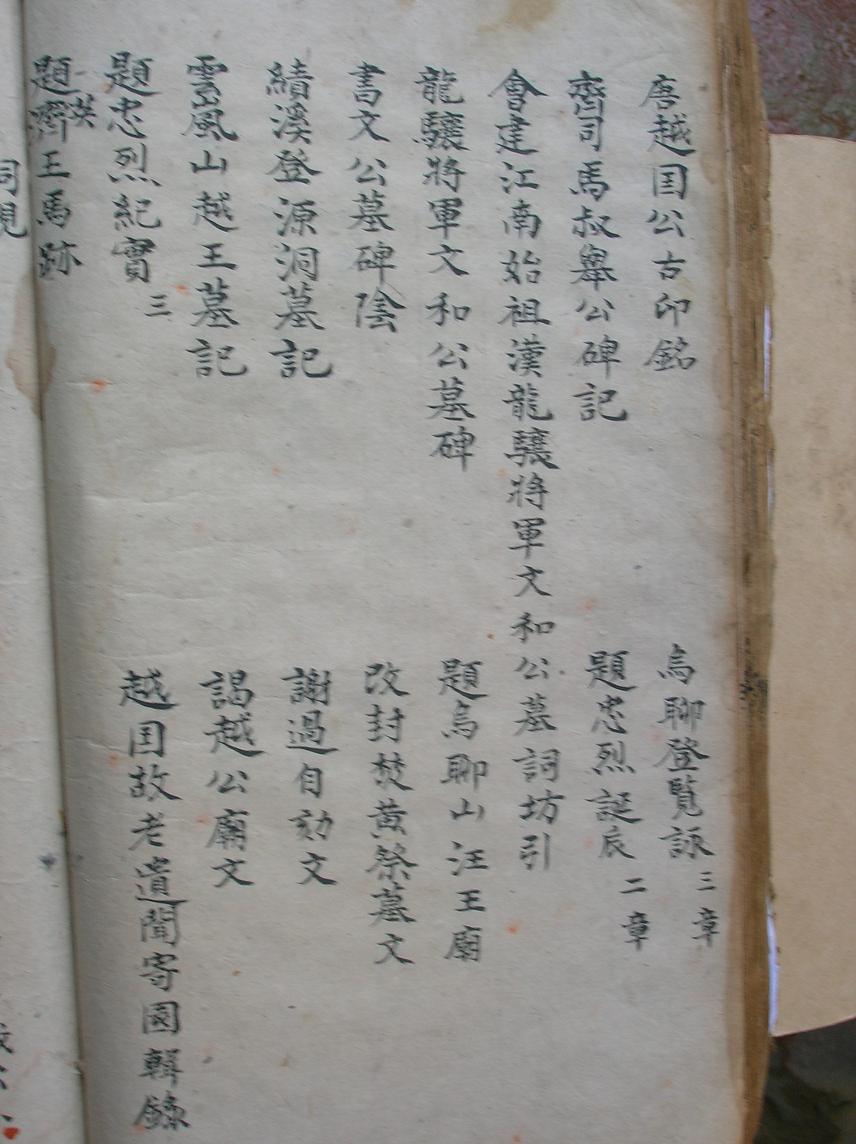 唐越囯公古印銘
烏聊登覽詠三章
齊司馬叔舉公碑記
題忠烈誕辰二章
會建江南始祖漢龍驤將軍文和公墓詞坊引
龍驤將軍文和公墓碑
題烏聊山汪王廟
書文公墓碑陰
改封焚黄祭墓文
績溪登源洞墓記
謝過自劾文
雲嵐山越王墓記
謁越公廟文
題忠烈紀實三
越囯故老遺聞寄園輯錄
題英濟王馬跡